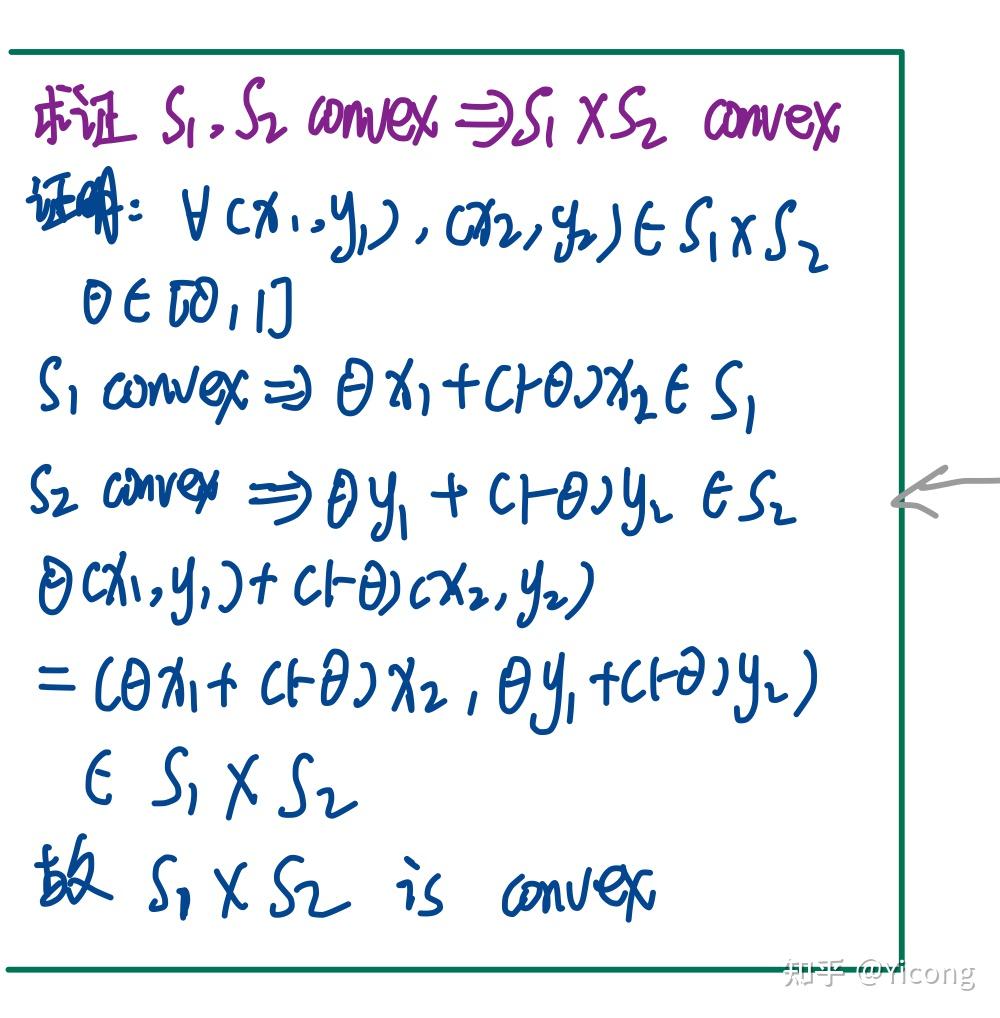 求证 S₁, S₂ convex ⇒ S₁ × S₂ convex
证明: ∀ (x₁, y₁), (x₂, y₂) ∈ S₁ × S₂
θ ∈ [0, 1]
S₁ convex ⇒ θx₁ + (1-θ)x₂ ∈ S₁
S₂ convex ⇒ θy₁ + (1-θ)y₂ ∈ S₂
θ(x₁, y₁) + (1-θ)(x₂, y₂)
= (θx₁ + (1-θ)x₂, θy₁ + (1-θ)y₂)
∈ S₁ × S₂
故 S₁ × S₂ is convex
知乎 @Yicong